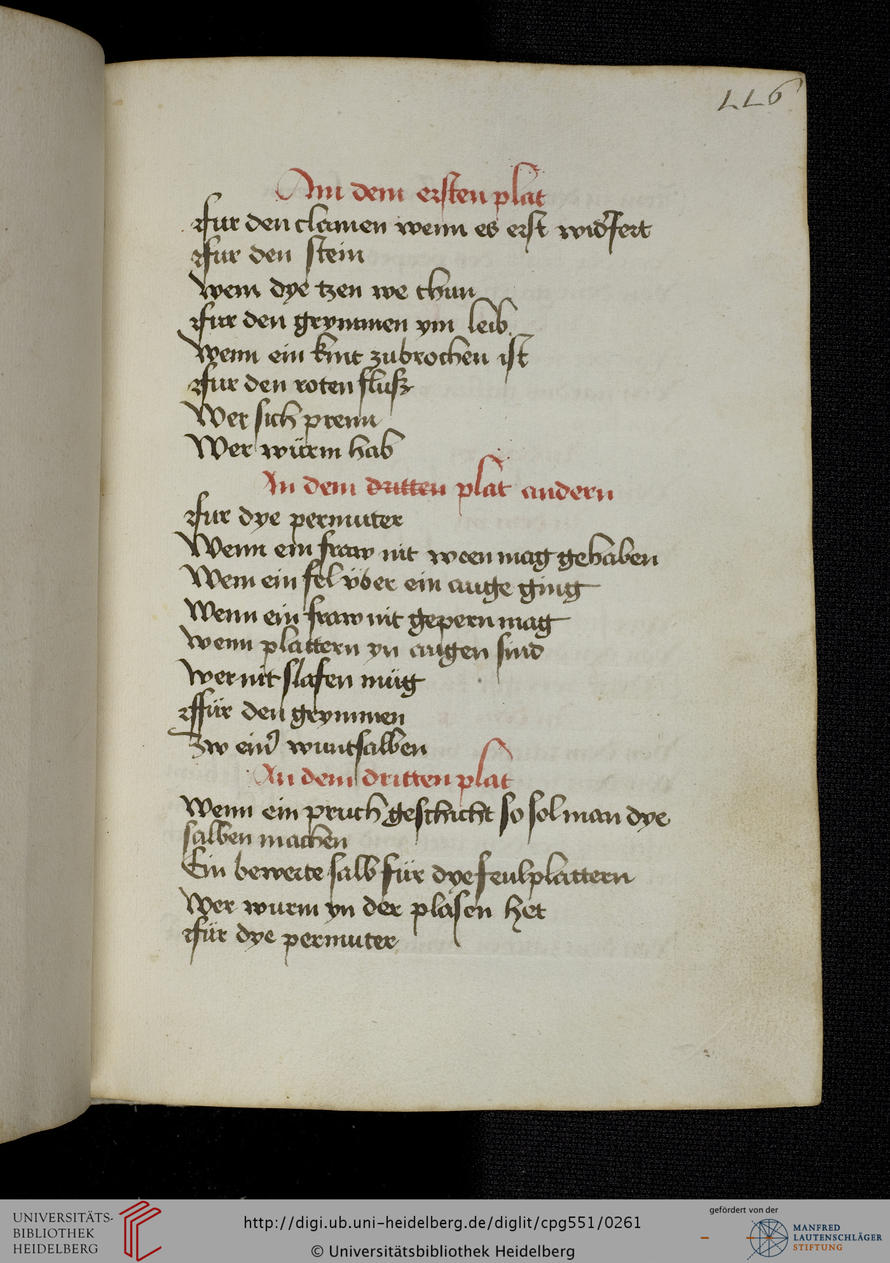 226
Am dem ersten plat
Fur den clamen wenn es erst widerfert
Fur den stein
Wem dye tzen we thun
Fur den grymmen ym leib
Wenn ein kint zubrochen ist
Fur den roten flusz
Wer sich prenn
Wer würm hab
An dem dritten plat andern
Fur dye permuter
Wenn ein fraw nit mag gehaben
Wem ein fel vber ein auge ging
Wenn ein fraw nit gepern mag
Wenn plattern yn augen sind
Wer nit slafen müg
Ffür den grymmen
Zw einer wuntsalben
An dem dritten plat
Wenn ein pruch geschicht so sol man dye
salben machen
Ein bewerte salb für dye feulplattern
Wer wurm yn der plasen het
Für dye permuter
UNIVERSITÄTS-
BIBLIOTHEK
HEIDELBERG
http://digi.ub.uni-heidelberg.de/diglit/cpg551/0261
© Universitätsbibliothek Heidelberg
gefördert von der
MANFRED
LAUTENSCHLÄGER
STIFTUNG